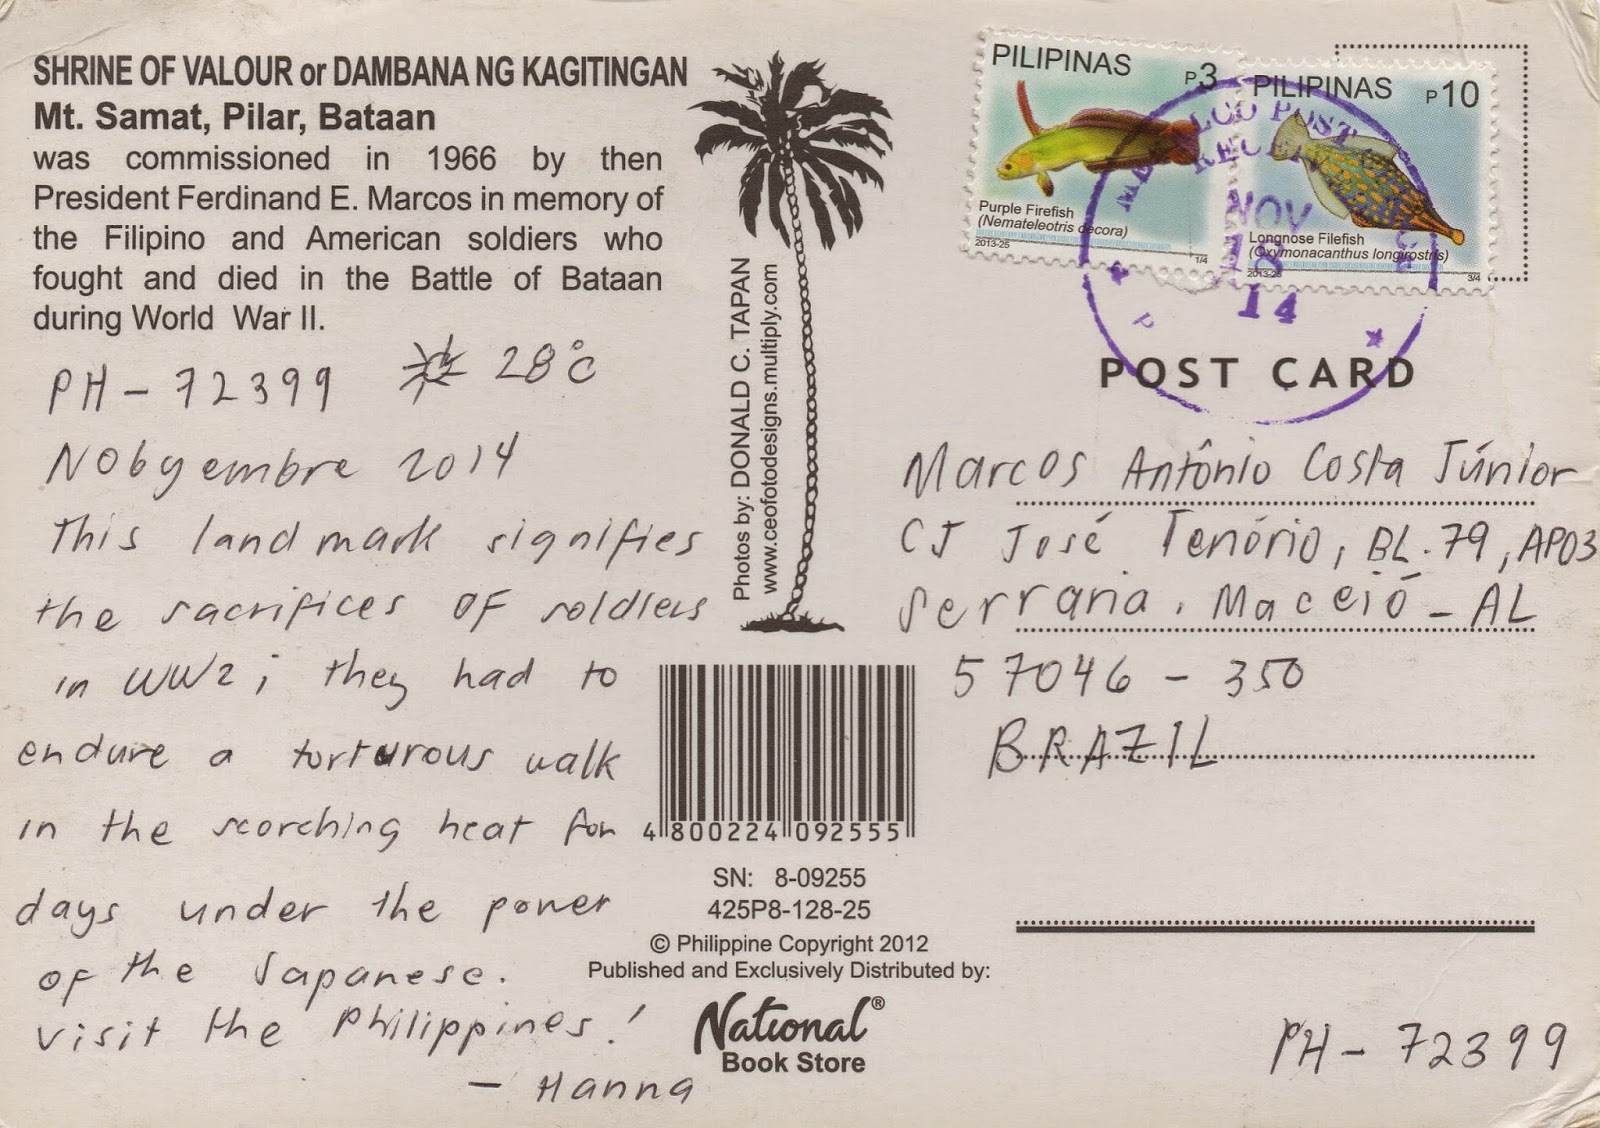 SHRINE OF VALOUR or DAMBANA NG KAGITINGAN
Mt. Samat, Pilar, Bataan
was commissioned in 1966 by then
President Ferdinand E. Marcos in memory of
the Filipino and American soldiers who
fought and died in the Battle of Bataan
during World War II.
PH - 72399 28°C
Nobyembre 2014
This landmark signifies
the sacrifices of soldiers
in WW2; they had to
endure a torturous walk
in the scorching heat for
days under the power
of the Japanese.
Visit the Philippines!
- Hanna
Photos by: DONALD C. TAPAN
www.ceofotodesigns.multiply.com
4 800224 092555
SN: 8-09255
425P8-128-25
© Philippine Copyright 2012
Published and Exclusively Distributed by:
National®
Book Store
PILIPINAS P3
Purple Firefish
(Nemateleotris decora)
2013-25 1/4
PILIPINAS P10
Longnose Filefish
(Oxymonacanthus longirostris)
2013-25 3/4
POST
NOV
18
14
P
POST CARD
Marcos Antônio Costa Júnior
CJ José Tenório, BL.79, AP03
Serraria. Maceió - AL
57046 - 350
BRAZIL
PH - 72399